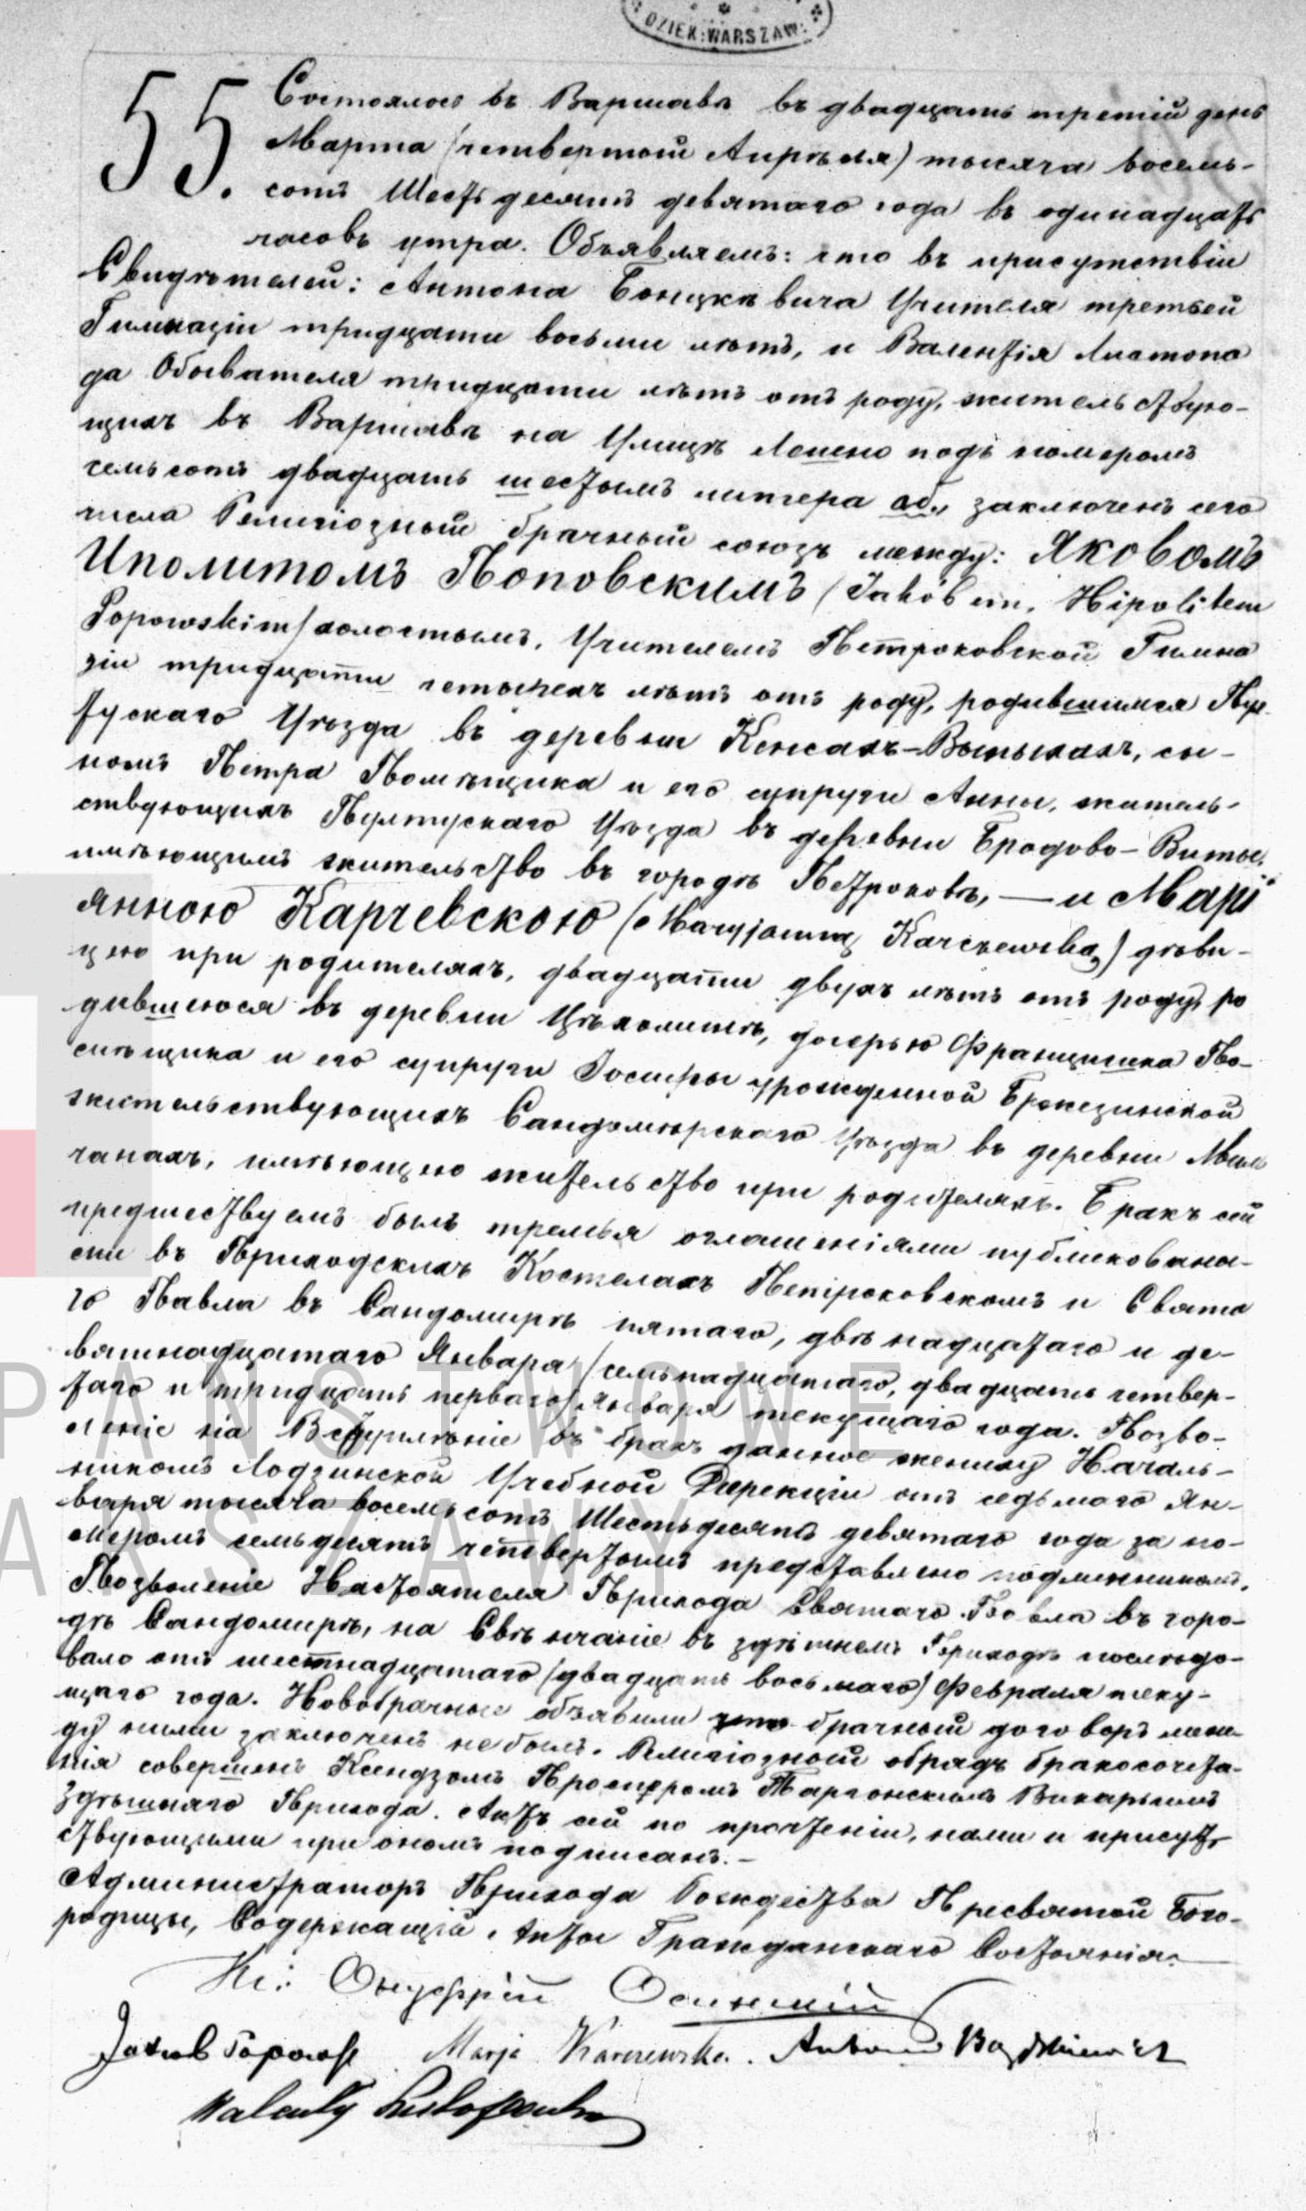 DZIEK: WARSZAW:
55.
Состоялось въ Варшавѣ въ двадцать третій день
Марта (четвертой Апрѣля) тысяча восемь-
сотъ Шестьдесятъ девятаго года въ одинадцать
часовъ утра. Объявляемъ: что въ присутствіи
Свидѣтелей: Антона Учителя третьей
Гимназіи тридцати восьми лѣтъ, и Валентія Листопа
да Обывателя тридцати лѣтъ отъ роду, жительствую-
щихъ въ Варшавѣ на Улицѣ Лешно подъ номеромъ
семьсотъ двадцать шестымъ литтера аб., заключенъ сего
числа Религіозный брачный союзъ между: Яковомъ
Иполитомъ Поповскимъ (Jakóbem, Hipolitem
Popowskim) холостымъ, Учителемъ Петроковской Гимна
зіи тридцати четырехъ лѣтъ отъ роду, родившимся Пул
тускаго Уѣзда въ деревни Кенсахъ-Вытыхахъ, сы-
номъ Петра Помѣщика и его супруги Анны, житель-
ствующихъ Пултускаго Уѣзда въ деревни Бродово-Виты,
имѣющимъ жительство въ городѣ Петроковѣ, — и Марі
янною Карчевскою (Maryjanną Karczewską) дѣви-
цею при родителяхъ, двадцати двухъ лѣтъ отъ роду, ро
дившеюся въ деревни дочерью Францишка По-
мѣщика и его супруги урожденной Бржезинской
жительствующихъ Сандомірскаго Уѣзда въ деревни Миль
чанахъ, имѣющею жительство при родителяхъ. Бракъ сей
предшествуемъ былъ тремья оглашеніями публикованы-
ми въ Приходскихъ Костелахъ Петроковскомъ и Свята
го Павла въ Сандомирѣ пятаго, двѣнадцатаго и де-
вятнадцатаго Января (семьнадцатаго, двадцать четвер-
таго и тридцать перваго) Января текущаго года. Позво-
леніе на Вступленіе въ бракъ данное жениху Началь-
никомъ Лодзинской Учебной Дирекціи отъ седьмаго Ян-
варя тысяча восемьсотъ Шестьдесятъ девятаго года за но-
меромъ семьдесятъ четвертымъ представлено подлинникомъ.
Позволеніе Настоятеля Прихода Святаго Павла въ горо-
дѣ Сандомирѣ, на Свѣнчаніе въ здѣшнемъ Приходѣ послѣдо-
вало отъ шестнадцатаго (двадцать восьмаго) Февраля теку-
щаго года. Новобрачные объявили что брачный договоръ меж-
ду ними заключенъ не былъ. Религіозный обрядъ бракосочета-
нія совершенъ Ксендзомъ Просперомъ Таргонскимъ Викарымъ
Здѣшняго Прихода. Актъ сей по прочтеніи, нами и присутъ
ствующими при ономъ подписанъ.—
Администраторъ Прихода Рождества Пресвятой Бого-
родицы, Содержащій Акты Гражданскаго Состоянія.—
Кс: Онуфрій
Marja Karczewska. Antoni
PAŃSTWOWE
WARSZAWY